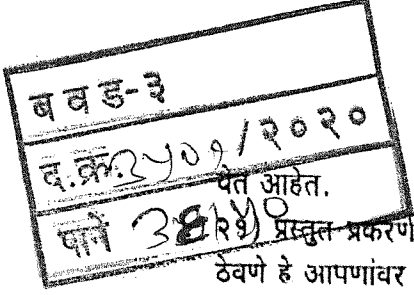 ब व ड-३
द.क्र. ३५०१/२०२०
येत आहेत.
पाने
२१) प्रस्तुत प्रकरणी
ठेवणे हे आपणांवर